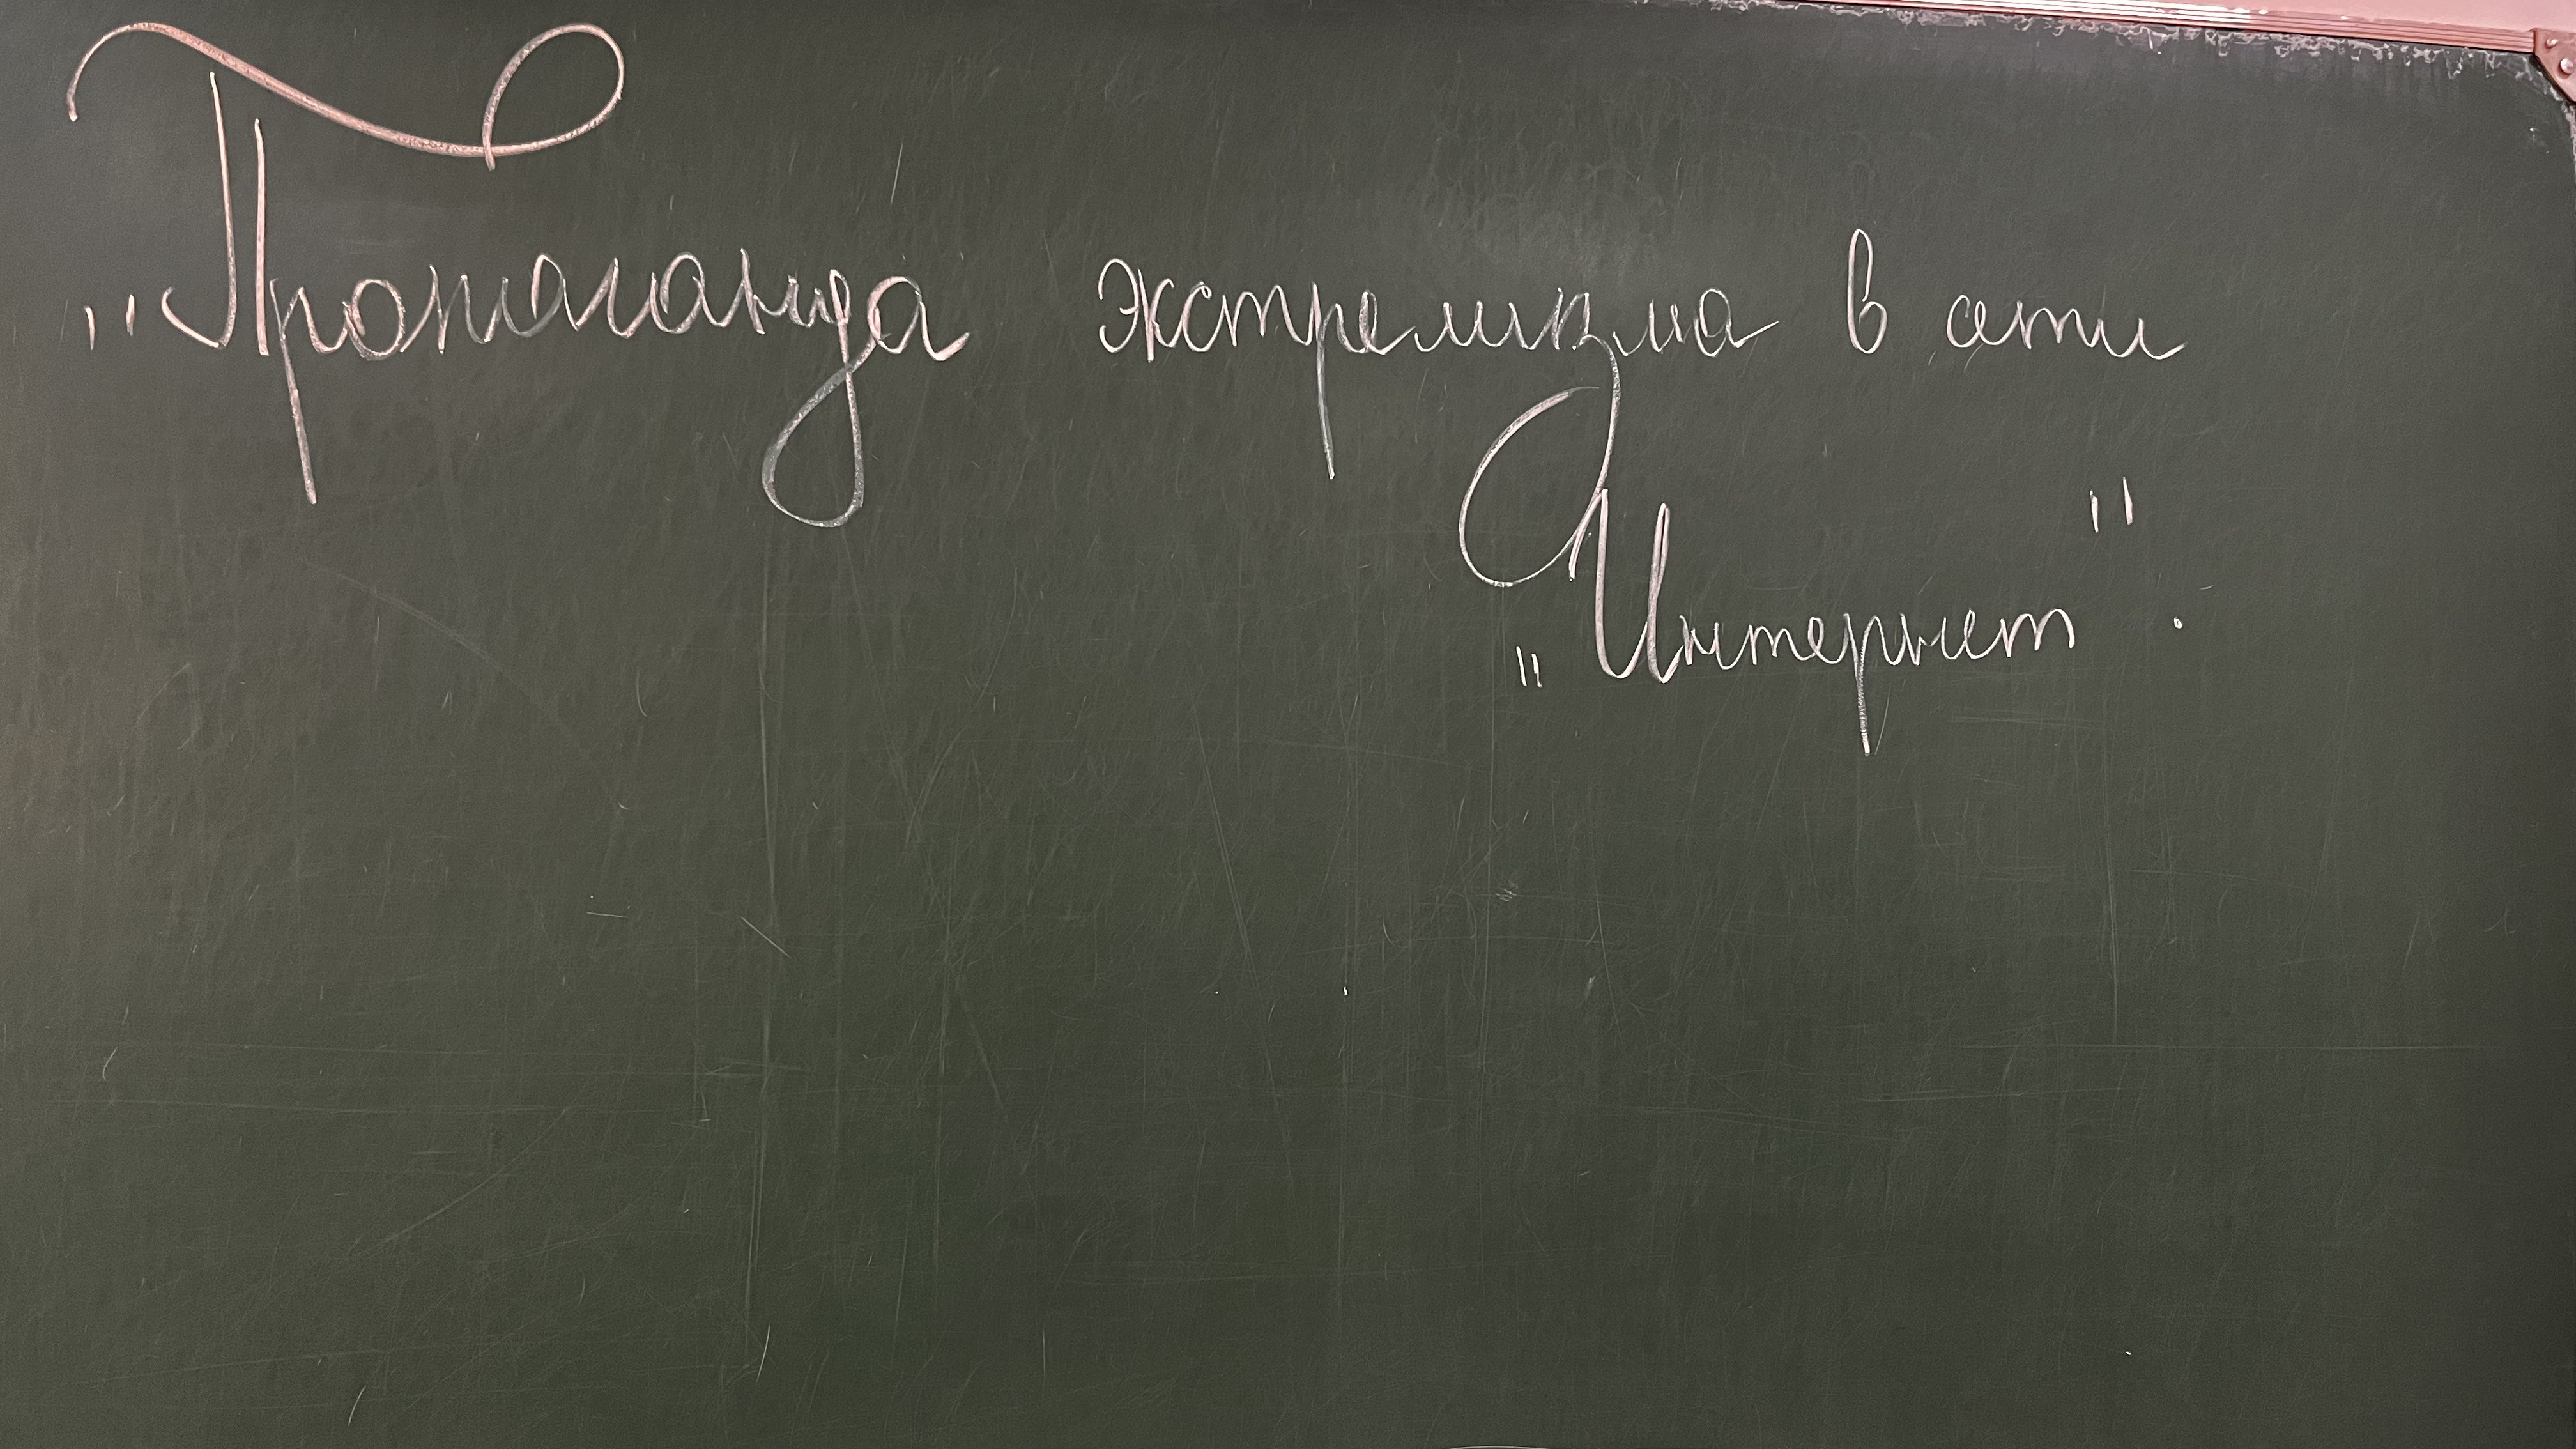 "Пропаганда экстремизма в сети
„Интернет".